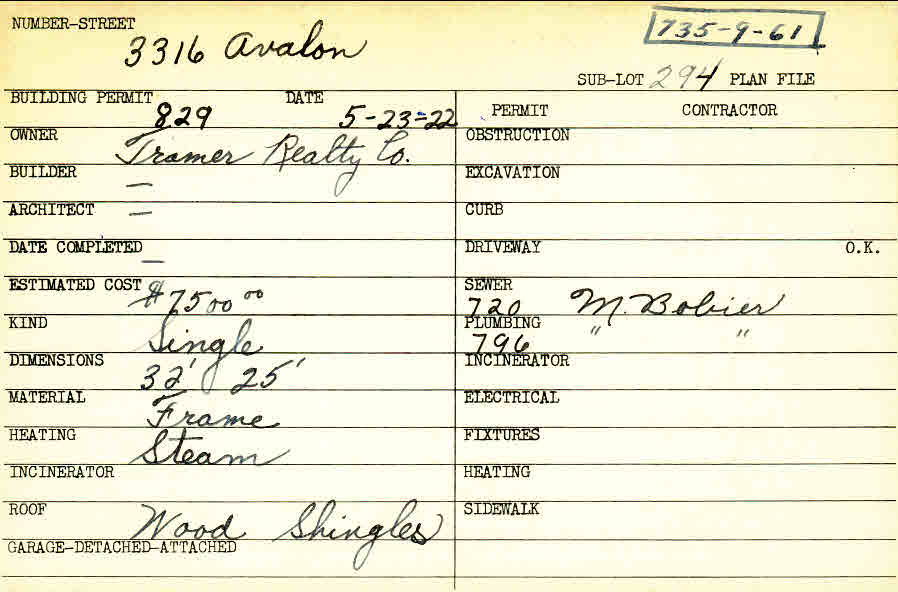 NUMBER-STREET
3316 Avalon
735-9-61
SUB-LOT 294 PLAN FILE
BUILDING PERMIT 829 DATE 5-23-22
OWNER Tramer Realty Co.
BUILDER —
ARCHITECT —
DATE COMPLETED —
ESTIMATED COST $7500 00
KIND Single
DIMENSIONS 32' 25'
MATERIAL Frame
HEATING Steam
INCINERATOR
ROOF Wood Shingles
GARAGE-DETACHED-ATTACHED
PERMIT CONTRACTOR
OBSTRUCTION
EXCAVATION
CURB
DRIVEWAY O.K.
SEWER 720 M. Bobier
PLUMBING 796 " "
INCINERATOR
ELECTRICAL
FIXTURES
HEATING
SIDEWALK